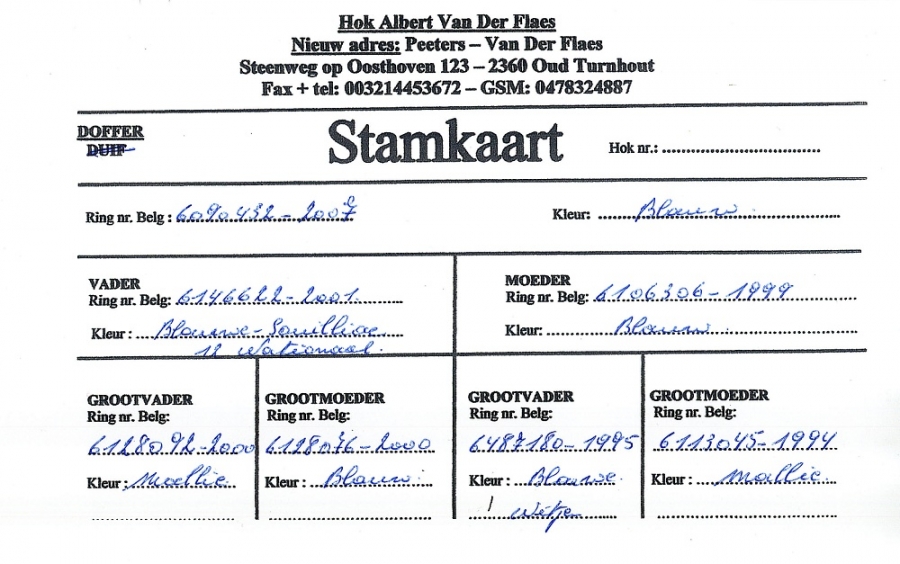 Hok Albert Van Der Flaes
Nieuw adres: Peeters – Van Der Flaes
Steenweg op Oosthoven 123 – 2360 Oud Turnhout
Fax + tel: 003214453672 – GSM: 0478324887
DOFFER
DUIF
Stamkaart
Hok nr.:
Ring nr. Belg : 6090432-2007
Kleur: Blauw
VADER
Ring nr. Belg: 6146622-2001
Kleur : Blauwe-Souillac
12 Nationaal
MOEDER
Ring nr. Belg: 6106306-1999
Kleur: Blauw
GROOTVADER
Ring nr. Belg:
6128092-2000
Kleur : Maellie
GROOTMOEDER
Ring nr. Belg:
6128076-2000
Kleur : Blauw
GROOTVADER
Ring nr. Belg:
6487180-1995
Kleur : Blauwe
Witje
GROOTMOEDER
Ring nr. Belg:
6113045-1994
Kleur : Mallie